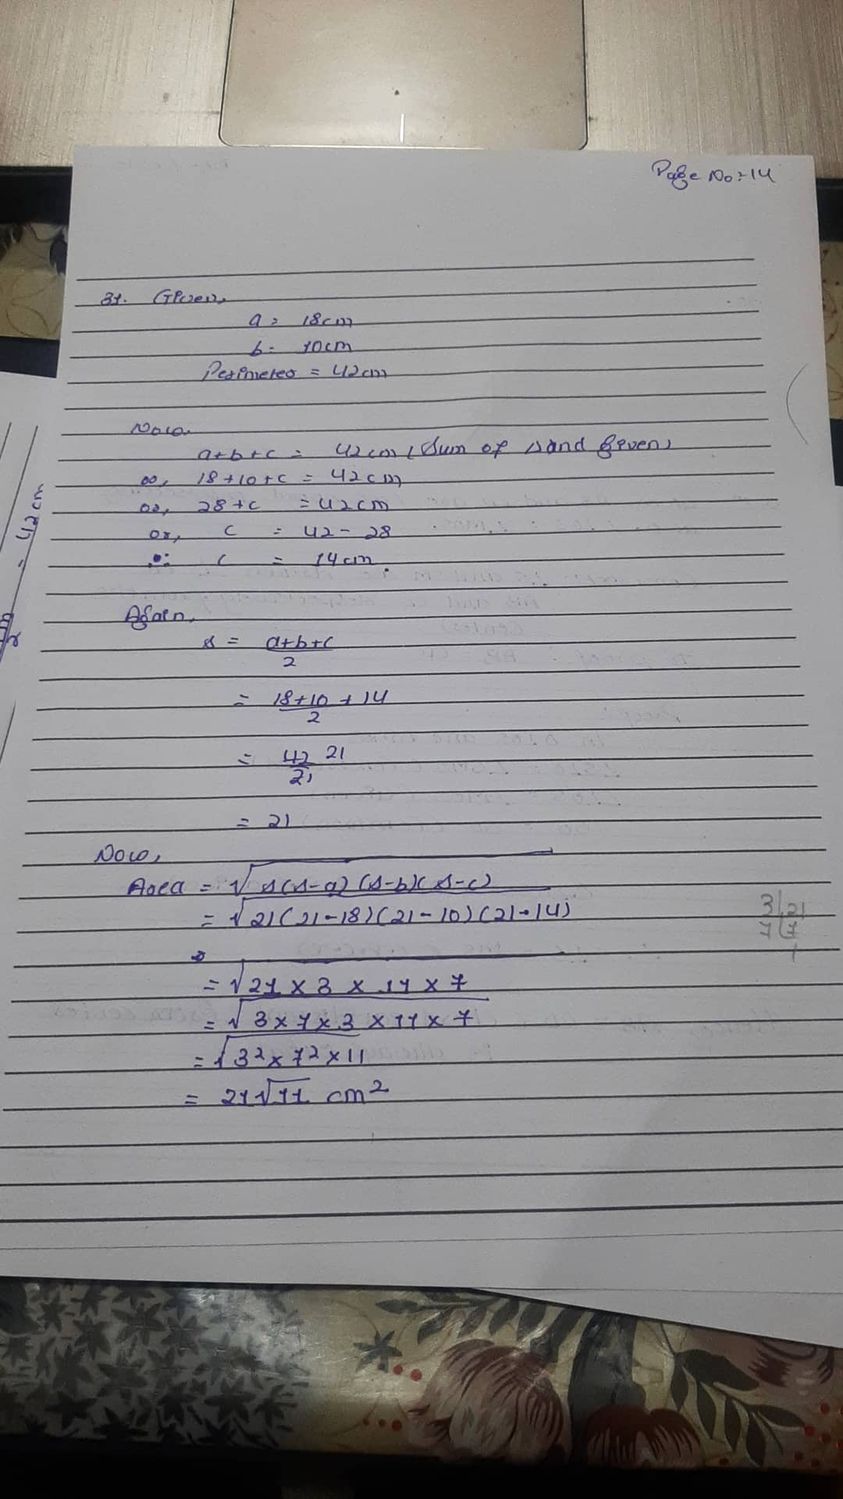 Page No:-14
31. Given,
a = 18cm
b = 10cm
Perimeter = 42cm
Now,
a+b+c = 42cm (Sum of s and given)
or, 18+10+c = 42cm
or, 28+c = 42cm
or, c = 42-28
∴ c = 14cm.
Again,
s = a+b+c
2
= 18+10+14
2
= 42 21
21
= 21
Now,
Area = √s(s-a)(s-b)(s-c)
= √21(21-18)(21-10)(21-14)
3 21
7 7
1
= √21 x 3 x 11 x 7
= √3 x 7 x 3 x 11 x 7
= √3² x 7² x 11
= 21√11 cm²
= 42cm